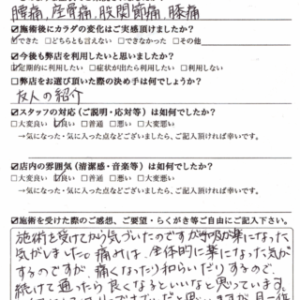 腰痛,座骨痛,股関節痛,膝痛
☑施術後にカラダの変化はご実感頂けましたか?
☑できた □どちらとも言えない □できなかった □その他
☑今後も弊店を利用したいと思いましたか?
☑定期的に利用したい □症状が出たら利用したい □利用しない
□弊店をお選び頂いた際の決め手は何でしょうか?
友人の紹介
☑スタッフの対応(ご説明・応対等)は如何でしたか?
□大変良い ☑良い □普通 □悪い □大変悪い
→気になった・気に入った点などございましたら、ご記入頂ければ幸いです。
☑店内の雰囲気(清潔感・音楽等)は如何でしたか?
□大変良い ☑良い □普通 □悪い □大変悪い
→気になった・気に入った点などございましたら、ご記入頂ければ幸いです。
☑施術を受けた際のご感想、ご要望・らくがき等ご自由にご記入下さい。
施術を受けてから気づいたのですが呼吸が楽になった
気がしました。痛みは、全体的に楽になった気が
するのですが、痛くなったり和らいだりするので、
続けて通ったら良くなるといいなと思っています。